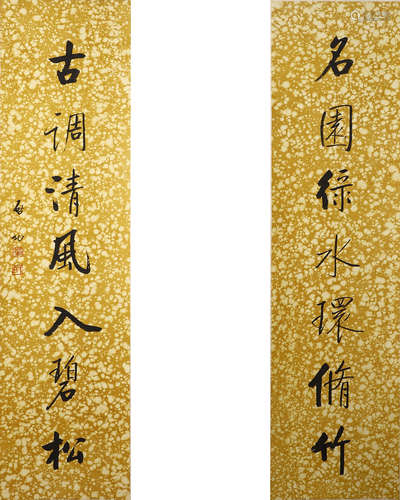 名園緑水環脩竹
古调清風入碧松
啟功